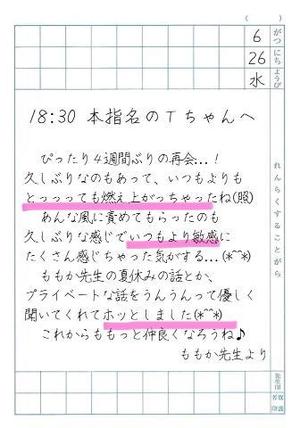 ( )
6 がつ
26 にち
水 ようび
れんらくすることがら
18:30 本指名のTちゃんへ
ぴったり4週間ぶりの再会…!
久しぶりなのもあって、いつもよりも
とっっっても燃え上がっちゃったね(照)
あんな風に責めてもらったのも
久しぶりな感じでいつもより敏感に
たくさん感じちゃった気がする…(*^^*)
ももか先生の夏休みの話とか、
プライベートな話をうんうんって優しく
聞いてくれてホッとしました(*^^*)
これからももっと仲良くなろうね♪
ももか先生より